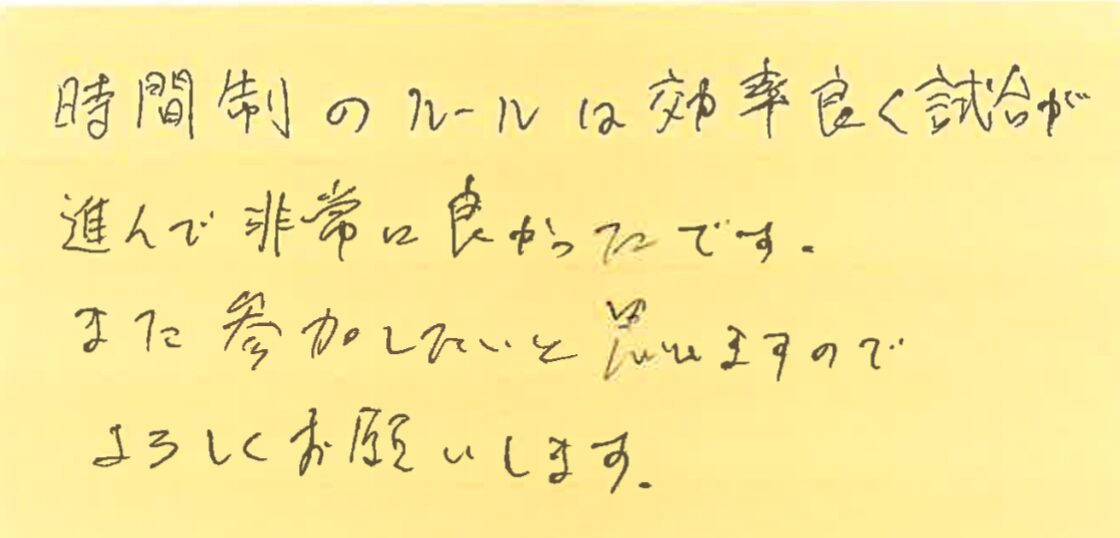 時間制のルールは効率良く試合が
進んで非常に良かったです.
また参加したいと思いますので
よろしくお願いします.